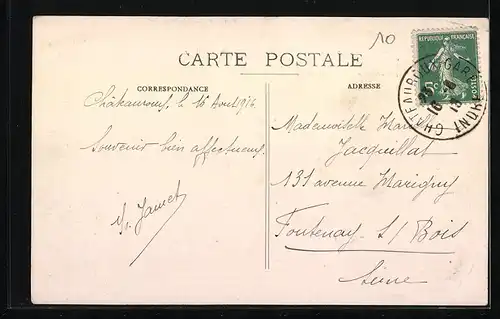 10
CARTE POSTALE
REPUBLIQUE FRANÇAISE
5c
POSTES
CHATEAUROUX-GARE
INDRE
16 - 8
CORRESPONDANCE
ADRESSE
Châteauroux, le 16 Août 1914
Souvenir bien affectueux.
Y. Jamet
Mademoiselle Marcelle
Jacquillat
131 avenue Marigny
Fontenay S/ Bois
Seine